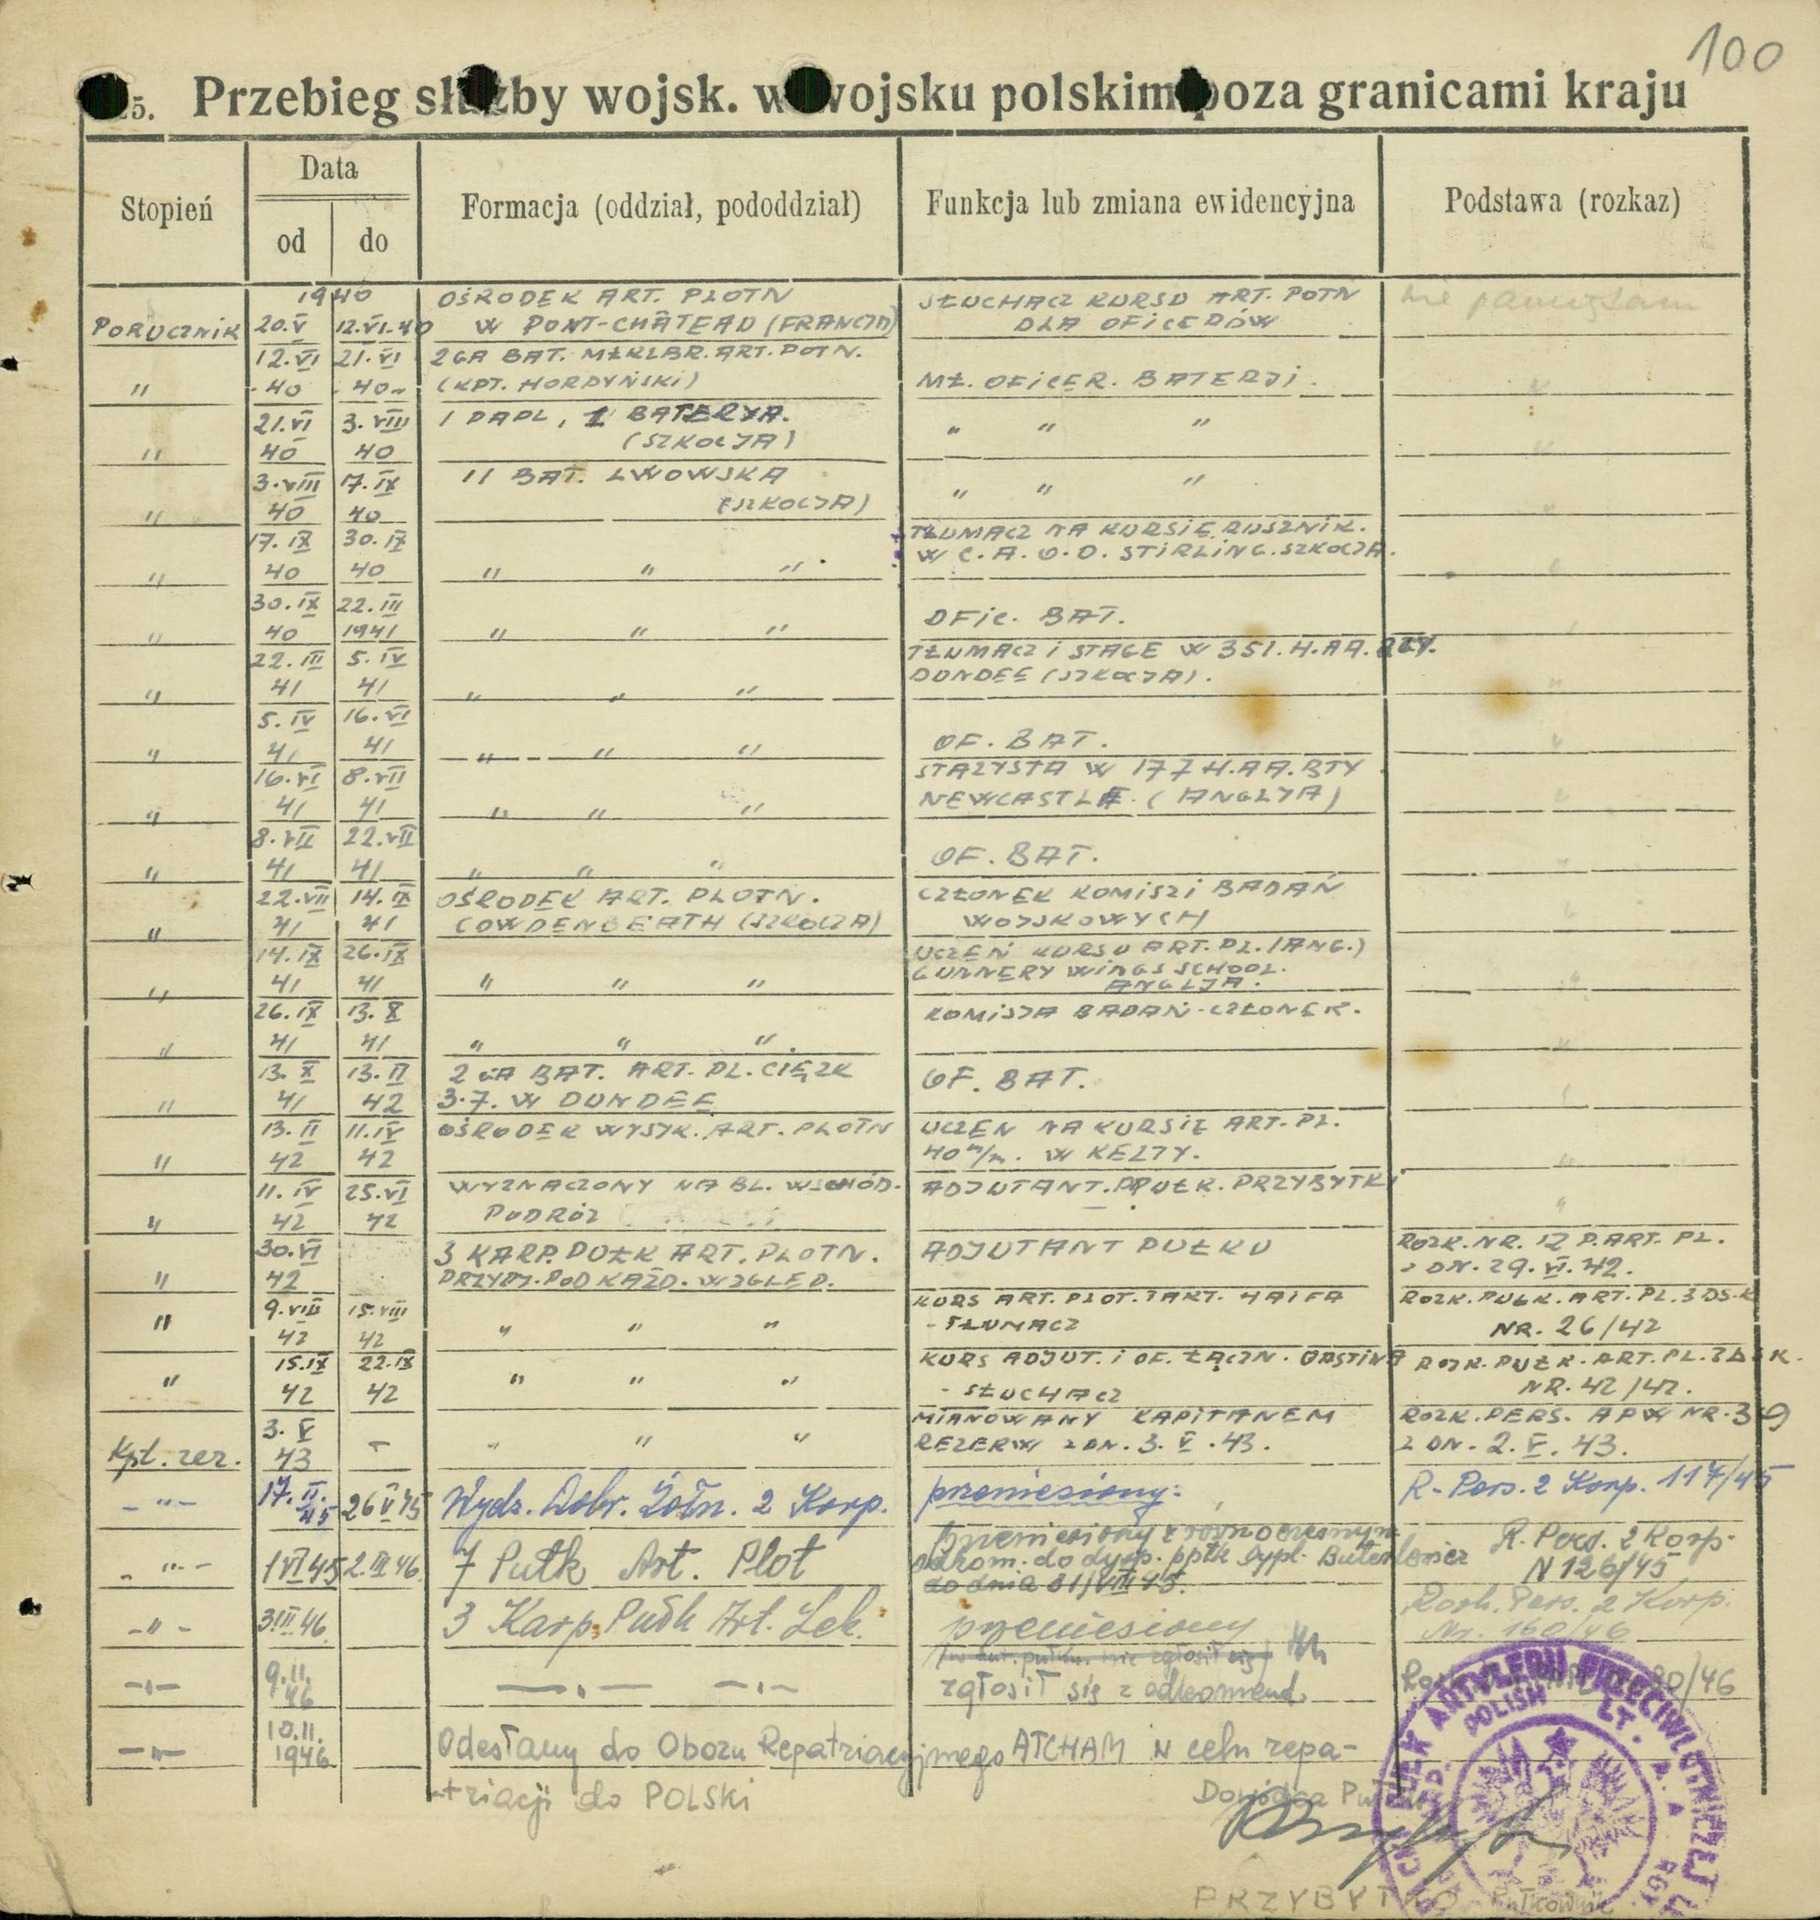 100
25. Przebieg służby wojsk. w wojsku polskim poza granicami kraju
Stopień
Data
od do
Formacja (oddział, pododdział)
Funkcja lub zmiana ewidencyjna
Podstawa (rozkaz)
1940 OŚRODEK ART. PLOTN SŁUCHACZ KURSU ART. POTN nie pamiętam
PORUCZNIK 20.V 12.VI.40 W PONT-CHÂTEAU (FRANCJA) DLA OFICERÓW
12.VI 21.VI 2GA BAT. MŁKLBR. ART. POTN.
" 40 40 (KPT. HORDYŃSKI) MŁ. OFICER. BATERJI. "
21.VI 3.VIII 1 DAPL, 1 BATERYA. " " "
" 40 40 (SZKOCJA) "
3.VIII 17.IX 11 BAT. LWOWSKA " " "
" 40 40 (SZKOCJA) "
17.IX 30.IX TŁUMACZ NA KURSIE RUSZNIK.
W C.A.O.D. STIRLING. SZKOCJA.
" 40 40 " " " "
30.IX 22.III OFIC. BAT.
" 40 1941 " " "
22.III 5.IV TŁUMACZ I STAGE W 351. H.AA. BTY.
" 41 41 " " " DUNDEE (SZKOCJA). "
5.IV 16.VI
" 41 41 " " " OF. BAT. "
16.VI 8.VII STAŻYSTA W 177 H.AA.BTY
" 41 41 " " " NEWCASTLE. (ANGLJA) "
8.VII 22.VII OF. BAT.
" 41 41 " " " "
22.VII 14.IX OŚRODEK ART. PLOTN. CZŁONEK KOMISJI BADAŃ
" 41 41 COWDENBEATH (SZKOCJA) WOJSKOWYCH "
14.IX 26.IX UCZEŃ KURSU ART. PL. (ANG.)
GUNNERY WINGS SCHOOL.
" 41 41 " " " ANGLJA. "
26.IX 13.X KOMISJA BADAŃ - CZŁONEK.
" 41 41 " " " "
13.X 13.II 2GA BAT. ART. PL. CIĘŻK OF. BAT.
" 41 42 3.7. W DUNDEE "
13.II 11.IV OŚRODEK WYSZK. ART. PLOTN UCZEŃ NA KURSIE ART. PL.
" 42 42 40 m/m. W KELTY. "
11.IV 25.VI WYZNACZONY NA BL. WSCHÓD. ADJUTANT. PPUŁK. PRZYBYTKI
" 42 42 PODRÓŻ "
30.VI 3 KARP. PUŁK ART. PLOTN. ADJUTANT PUŁKU ROZK. NR. 12 P.ART. PL.
" 42 PRZYDZ. POD KAŻD. WZGLĘD. Z DN. 29.VI.42.
" 9.VIII 15.VIII " " " KURS ART. PLOT. TAKT. HAIFA ROZK. PUŁK. ART. PL. 3 DS.K
42 42 - TŁUMACZ NR. 26/42
" 15.IX 22.IX " " " KURS ADJUT. I OF. ŁĄCZN. GASTINA ROZK. PUŁK. ART. PL. 3 DSK.
42 42 - SŁUCHACZ NR. 42/42.
3.V MIANOWANY KAPITANEM ROZK. PERS. APW NR. 39
Kpt. rez. 43 - " " " REZERW Z DN. 3.V.43. Z DN. 2.V.43.
- " - 17.II.45 26 V 45 Wydz. Dobr. Żołn. 2 Korp. przeniesiony: R-Pers. 2 Korp. 117/45
- " - 1 VI 45 2.III.46 7 Pułk Art. Plot przeniesiony z równoczesnym
odkom. do dysp. ppłk dypl.
do dnia 31/VIII 45.
R. Pers. 2 Korp.
N 126/45
- " - 3.III.46 3 Karp. Pułk Art. Lek. przeniesiony Rozk. Pers. 2 Korp.
Nr. 160/46
- " - 9.11.46 - " - - " - zgłosił się z odkomend. 80/46
- " - 10.11.1946 Odesłany do Obozu Repatriacyjnego ATCHAM w celu repa-
triacji do POLSKI
Dowódca Pułku
PRZYBYTKO Pułkownik
PUŁK ARTYLERII PRZECIWLOTNICZEJ
POLISH LT. A.A RGT.